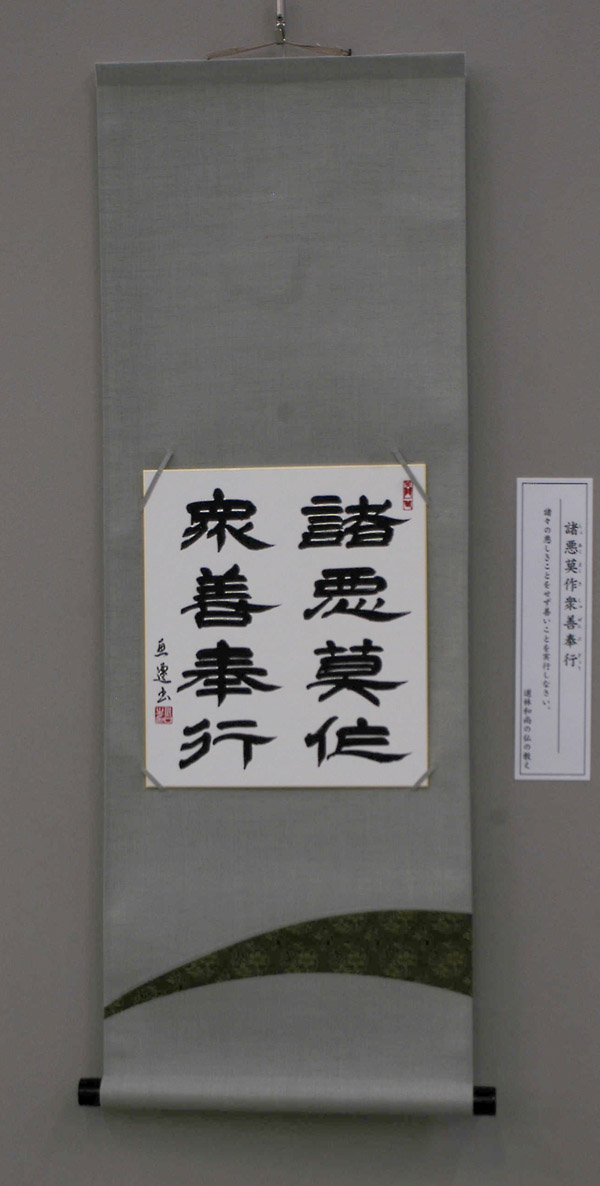 諸悪莫作
衆善奉行
諸悪莫作衆善奉行
諸々の悪しきことをせず善いことを実行しなさい。
道林和尚の仏の教え